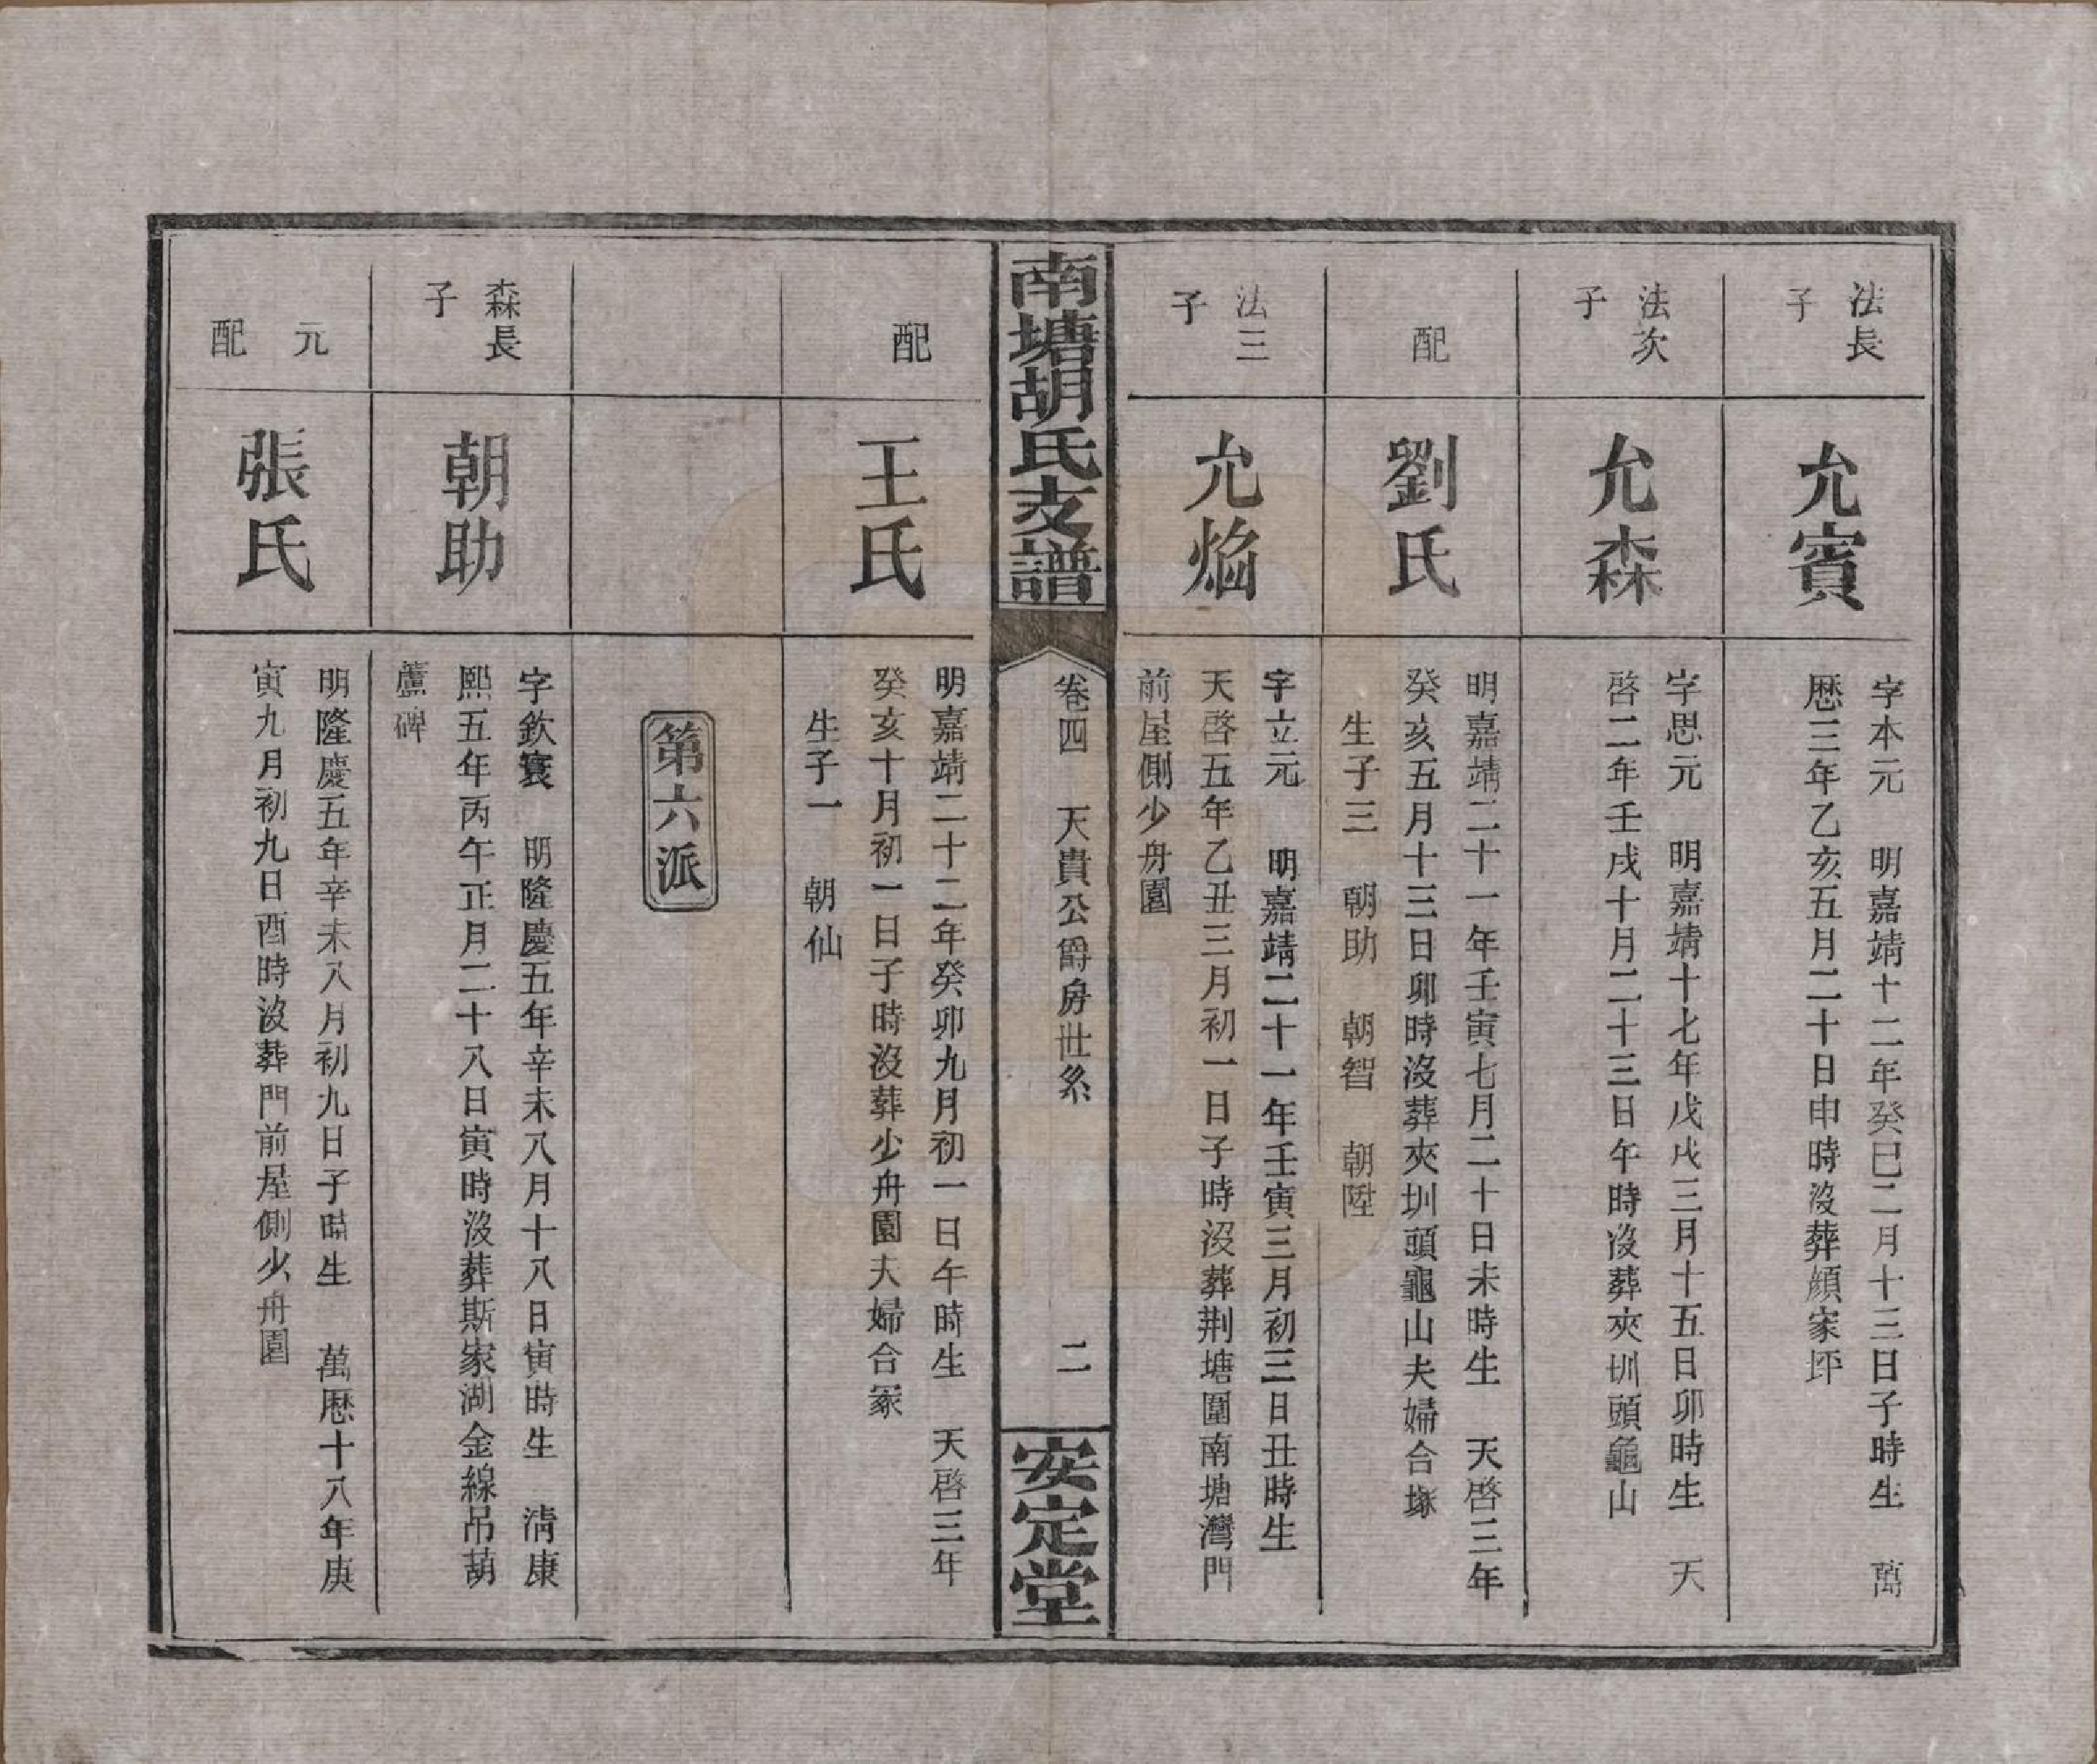 法長
子
允賓
字本元　明嘉靖十二年癸巳二月十三日子時生　萬
歷三年乙亥五月二十日申時沒葬顔家坪
法次
子
允森
字思元　明嘉靖十七年戊戌三月十五日卯時生　天
啓二年壬戌十月二十三日午時沒葬夾圳頭龜山
配
劉氏
明嘉靖二十一年壬寅七月二十日未時生　天啓三年
癸亥五月十三日卯時沒葬夾圳頭龜山夫婦合塚
生子三　朝助　朝智　朝陞
法三
子
允焰
字立元　明嘉靖二十一年壬寅三月初三日丑時生
天啓五年乙丑三月初一日子時沒葬荆塘圍南塘灣門
前屋側少舟園
南塘胡氏支譜
卷四　天貴公爵房世系
二
安定堂
配
王氏
明嘉靖二十二年癸卯九月初一日午時生　天啓三年
癸亥十月初一日子時沒葬少舟園夫婦合冢
生子一　朝仙
第六派
森長
子
朝助
字欽寰　明隆慶五年辛未八月十八日寅時生　清康
熙五年丙午正月二十八日寅時沒葬斯家湖金線吊葫
蘆碑
元
配
張氏
明隆慶五年辛未八月初九日子時生　萬歷十八年庚
寅九月初九日酉時沒葬門前屋側少舟園